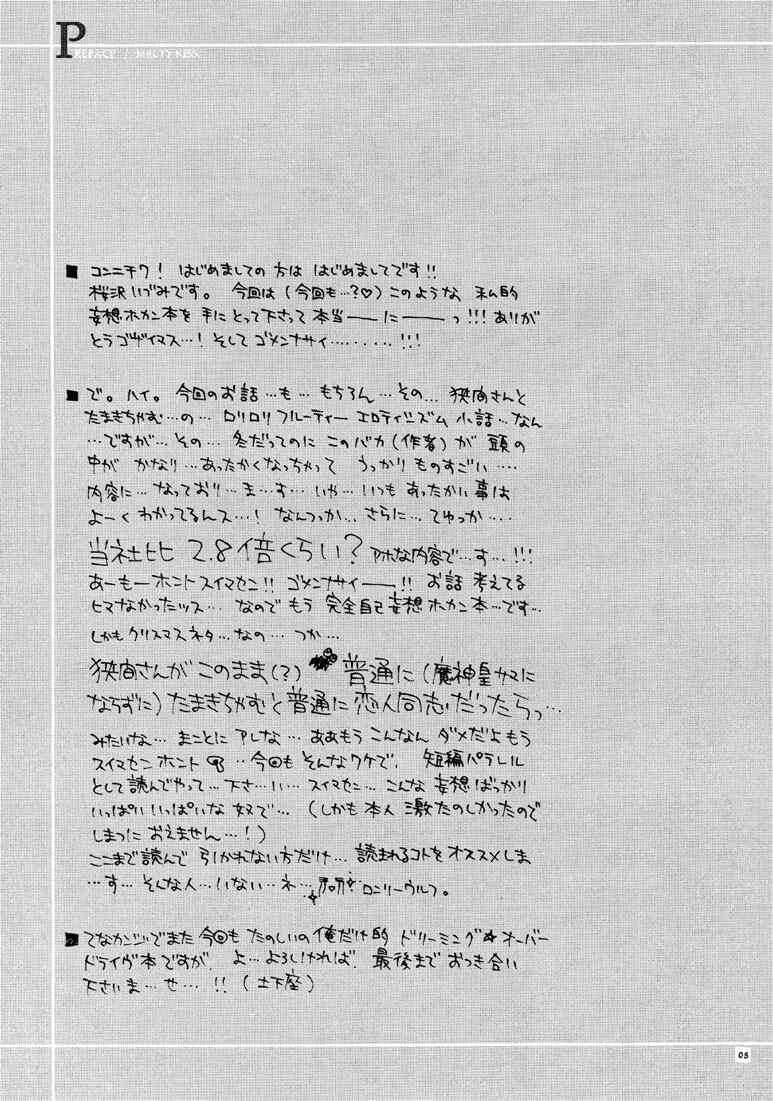 PREFACE / MELTY KISS
■ コンニチワ! はじめましての方は はじめましてです!!
桜沢いづみです。 今回は(今回も…?♡)このような 私的
妄想ホカン本を 手にとって下さって 本当——に——っ!!! ありが
とうゴザイマス…! そして ゴメンナサイ………!!!
■ で。ハイ。 今回のお話…も…もちろん…その… 狭間さんと
たまきちゃむ…の… ロリロリ フルーティー エロティシズム 小話…なん
…ですが…その… 冬だってのに このバカ(作者)が 頭の
中が かなり…あったかくなっちゃって うっかり ものすごい…
内容に…なっており…ま…す… いや…いつも あったかい事は
よーく わかってるんス…! なんつっか… さらに… てゆっか…
当社比 2.8倍くらい? アホな内容で…す…!!!
あーもーホント スイマセン!! ゴメンナサイ——!! お話 考えてる
ヒマなかったッス… なので もう 完全自己妄想ホカン本…です…
しかも クリスマスネタ…なの… つか…
狭間さんが このまま(?) 普通に(魔神皇サマに
ならずに)たまきちゃむと 普通に 恋人同志だったらっ…
みたいな… まことに アレな… ああもう こんなん ダメだよ もう
スイマセン ホント …今回も そんなワケで、 短編パラレル
として 読んでやって…下さ…い… スイマセン… こんな 妄想 ばっかり
いっぱい いっぱいな 奴で…(しかも本人 激たのしかったので
しまつに おえません…!)
ここまで読んで 引かれない方だけ… 読まれるコトを オススメしま
…す… そんな人…いない…ネ… ロンリーウルフ。
■ てなカンジでまた 今回も たのしいの 俺だけ的 ドリーミング☆オーバー
ドライヴ本ですが、 よ…よろしければ、 最後まで おつき合い
下さいま…せ…!! (土下座)
05